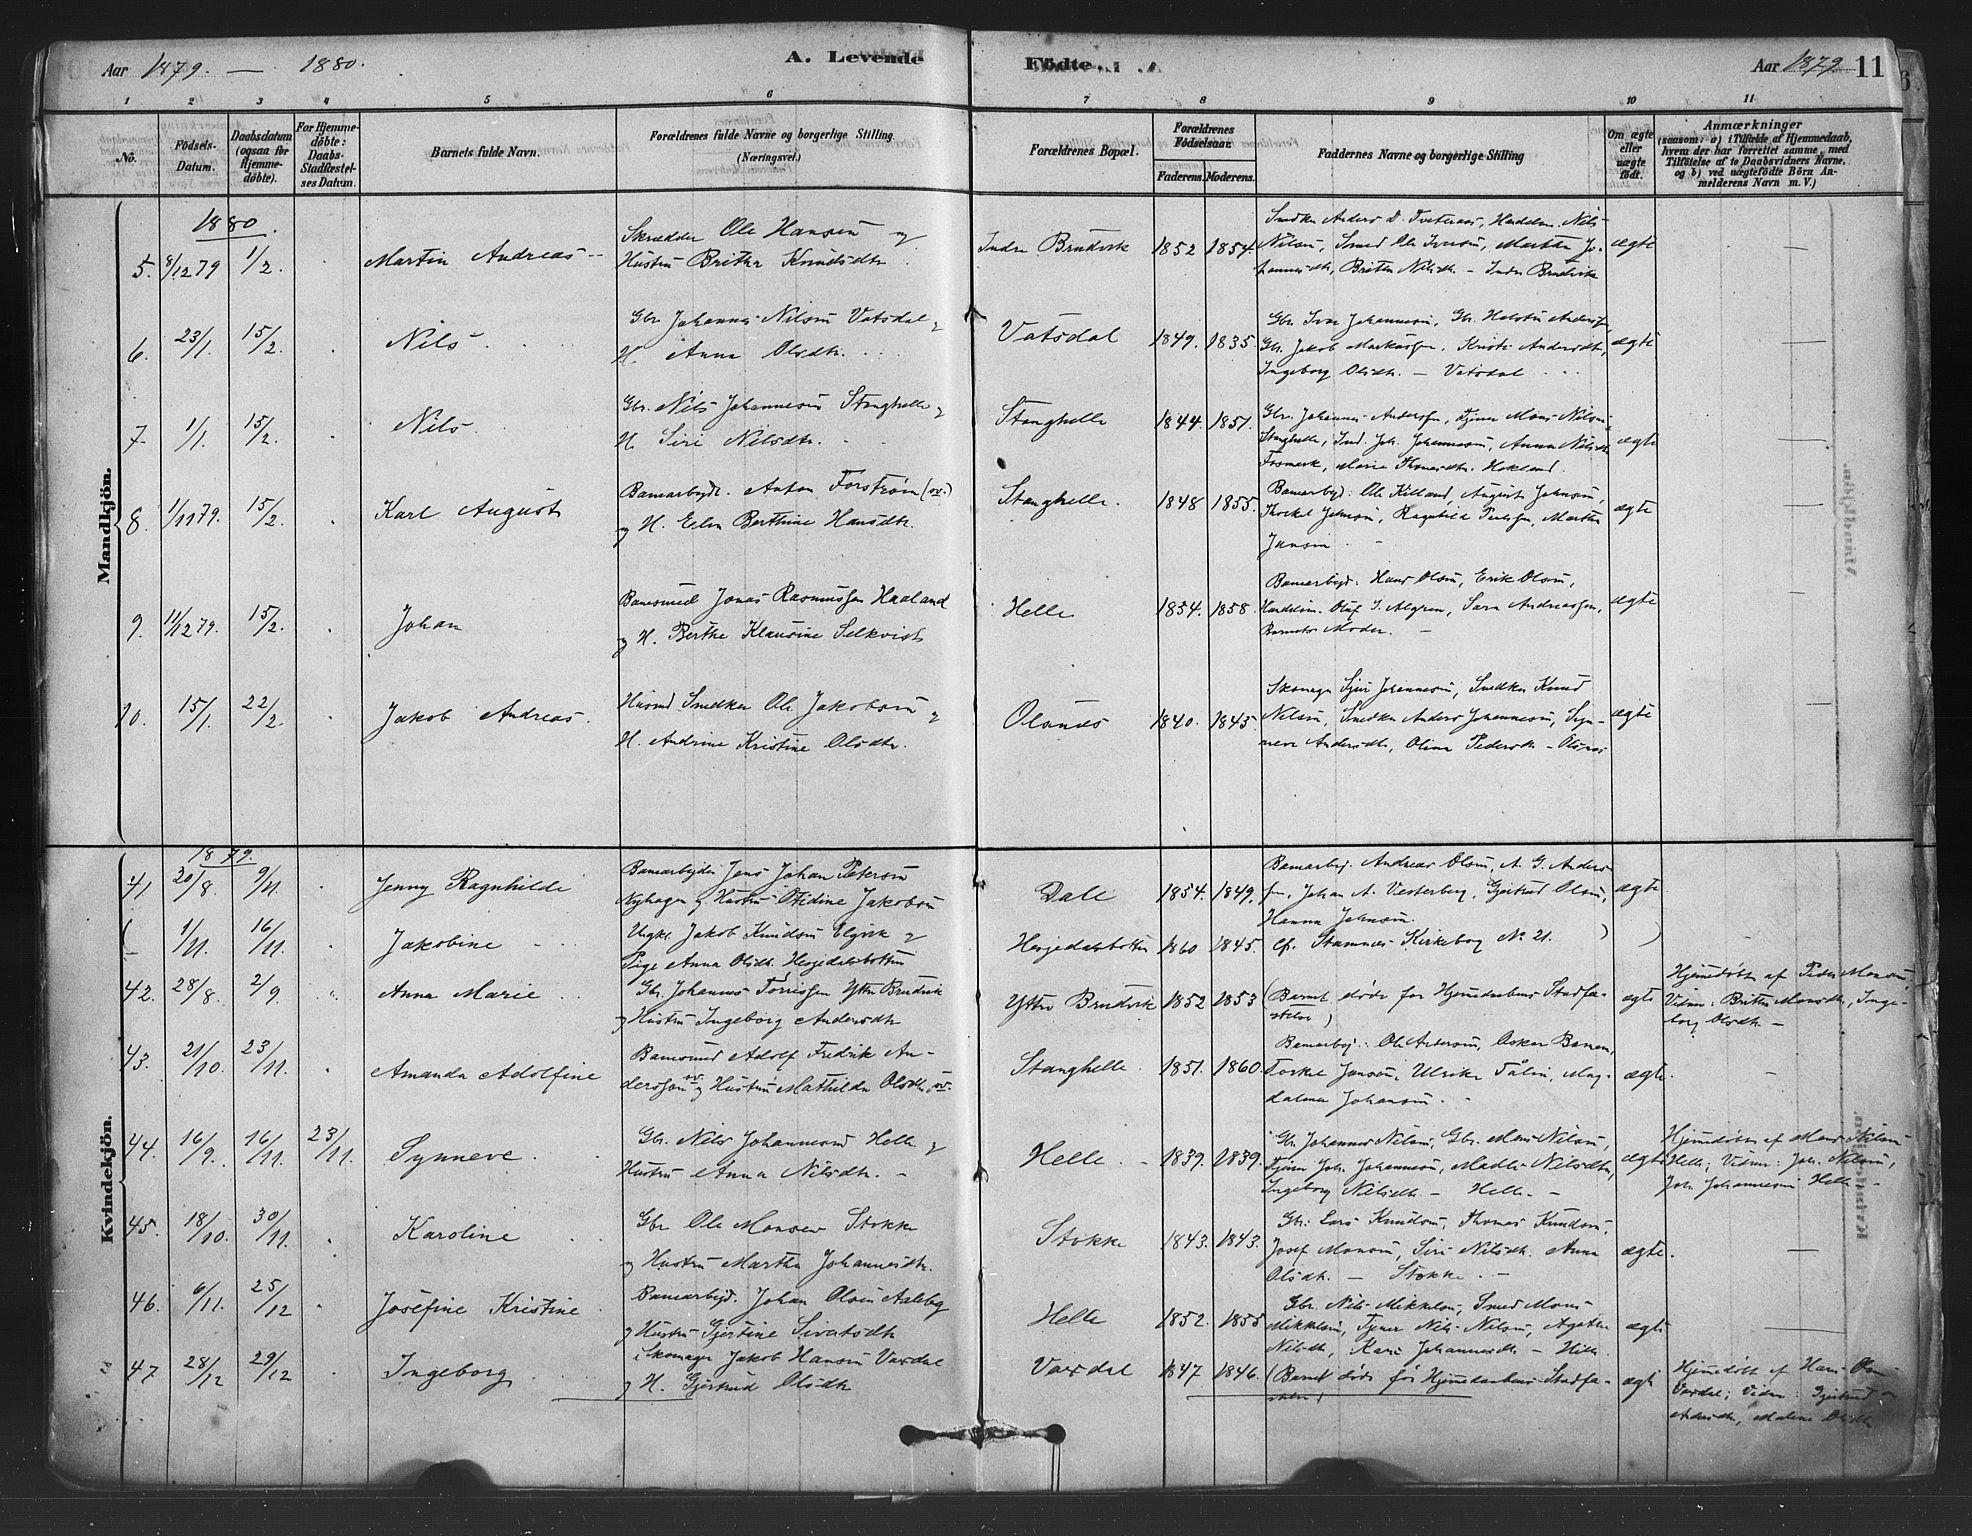 Aar 1879. — 1880. A. Levende Födte. Aar 1879. 11
1 2 3 4 5 6 7 8 9 10 11
No.
Födsels-Datum.
Daabsdatum (ogsaa for Hjemme-döbte).
For Hjemme-döbte: Daabs-Stadfæstel-ses Datum.
Barnets fulde Navn.
Forældrenes fulde Navne og borgerlige Stilling.
(Næringsvei.)
Forældrenes Bopæl.
Forældrenes Födselsaar.
Faderens. Moderens.
Faddernes Navne og borgerlige Stilling
Om ægte eller uægte födt.
Anmærkninger
(saasom: a) i Tilfælde af Hjemmedaab, hvem der har forrettet samme, med Tilföielse af to Daabsvidners Navne, og b) ved uægtefödte Börn An-melderens Navn m. V.)
Mandkjön.
1880.
5. 8/12 79 1/2. Martin Andreas
Skrædder Ole Hansen og
Hustru Britha Knudsdtr.
Indre Bruvik 1852 1854.
Nilsen, Smed Ole Iversen, Martha Jo-
hannesdtr, Britha Nilsdtr. - Indre Bruvik
ægte —
6. 23/1. 15/2. Nils
Gbr Johannes Nilsen Vatsdal og
H. Anna Olsdtr.
Vatsdal 1849. 1835.
Gbr Ivar Johannesen, Gbr. Halsten Andersen,
Gbr. Jakob Markussen, Kristi Andersdtr,
Ingeborg Olsdtr. — Vatsdal
ægte —
7. 1/1. 15/2. Nils
Gbr. Nils Johannesen Stanghelle og
H. Siri Nilsdtr.
Stanghelle 1844. 1851.
Gbr. Johannes Andersen, Tjener Mons Nilsen
Stanghelle, Ind. Joh. Johannesen, Anna Nilsdtr
Fosmark, Marie Thomasdtr. Hokland.
ægte —
8. 1/11 79. 15/2. Karl August
Banearbeid. Anton Forstrøm (sv.)
og H. Elen Berthine Hansdtr.
Stanghelle. 1848 1855.
Banearbeid: Ole Killand, August Johnsen,
Thorkel Johnsen, Ragnhild Pedersen, Martha
Jansen
ægte —
9. 11/12 79. 15/2. Johan
Banesmed Jonas Rasmussen Haaland
og H. Berthe Klausine Selkvist
Helle 1854. 1858.
Banearbeid: Hans Olsen, Erik Olsen,
Handelsm. Olaf I. Algren, Sara Andreassen,
Barnets Moder.
ægte —
10. 15/1. 22/2. Jakob Andreas.
Husmd Snedker Ole Jakobsen og
H. Andrine Kristine Olsdtr.
Olsnæs 1840. 1845.
Skomager Sjur Johannesen, Snedker Knud
Nilsen, Snedker Anders Johannesen, Syn-
neve Andersdtr, Olina Pedersdtr - Olsnæs
ægte —
Kvindekjön.
1879.
41. 20/8. 9/11. Jenny Ragnhilde
Banearbeider Jens Johan Petersen
Nyhagen og Hustru Otidine Jakobsen
Dale 1854. 1849.
Banearbej. Andreas Olsen, A. G. Anders
sen, Johan A. Vesterberg, Gjertrud Olsen,
Hanna Johnsen.
ægte
(— 1/11. 16/11. Jakobine
Ungkr. Jakob Knudsen Elgvik og
Pige Anna Olsdtr. Hesjedalsbotten
Hesjedalsbotten 1860 1845. cfr. Stamnes Kirkebog No 21. )
42. 28/8. 2/9. Anna Marie
Gbr. Johannes Torrissen Yttre Bruvik
og Hustru Ingeborg Andersdtr
Yttre Bruvik 1852 1853 (Barnet døde før Hjemdaabens Stadfæ-
stelse)
ægte
Hjemdøbt af Peder Monsen,
Vidner: Britha Monsdtr, Inge-
borg Olsdtr —
43. 21/10. 23/11. Amanda Adolfine
Banesmed Adolf Fredrik An-
dersson sv. og Hustru Mathilda Olsdtr, sv.
Stanghelle. 1851. 1860.
Torkel Jansen, Ulrike Tålin, Mag-
dalena Johansen.
ægte —
44. 16/9. 16/11. 23/11. Synneve.
Gbr. Nils Johannesen Helle og
Hustru Anna Nilsdtr. —
Helle. 1839. 1839.
Gbr. Johannes Nilsen, Gbr. Mons Nilsen,
Tjener Joh. Johannesen, Madli Nilsdtr,
Ingeborg Nilsdtr — Helle —
ægte
Hjemdøbt af Mons Nilsen
Helle; Vidner: Joh. Nilsen,
Joh. Johannesen Helle
45. 18/10. 30/11. Karoline
Gbr Ole Monsen Stokke
og Hustru Martha Johannesdtr.
Stokke 1843. 1843.
Gbr: Lars Knudsen, Thomas Knudsen,
Josef Monsen, Siri Nilsdtr. Anna
Olsdtr. — Stokke. —
ægte. —
46. 6/11. 25/12 Josefine Kristine
Banearbejd. Johan Olsen Aaleby
og Hustru Gjertine Sivertsdtr
Helle 1852. 1855
Gbr. Nils Mikkelsen, Smed Mons
Mikkelsen, Tjener Nils Nilsen, Agathe
Nilsdtr, Kari Johannesdtr — Helle
ægte —
47 28/12 29/12 Ingeborg
Skomager Jakob Hansen Vaxdal
og H. Gjertrud Olsdtr
Vaxdal 1847 1846. (Barnet døde før Hjemdaabens Stadfæ-
stelse)
ægte
Hjemdøbt af Hans Olsen
Vaxdal; Vidner: Gjertrud
Andersdtr, Malene Olsdtr